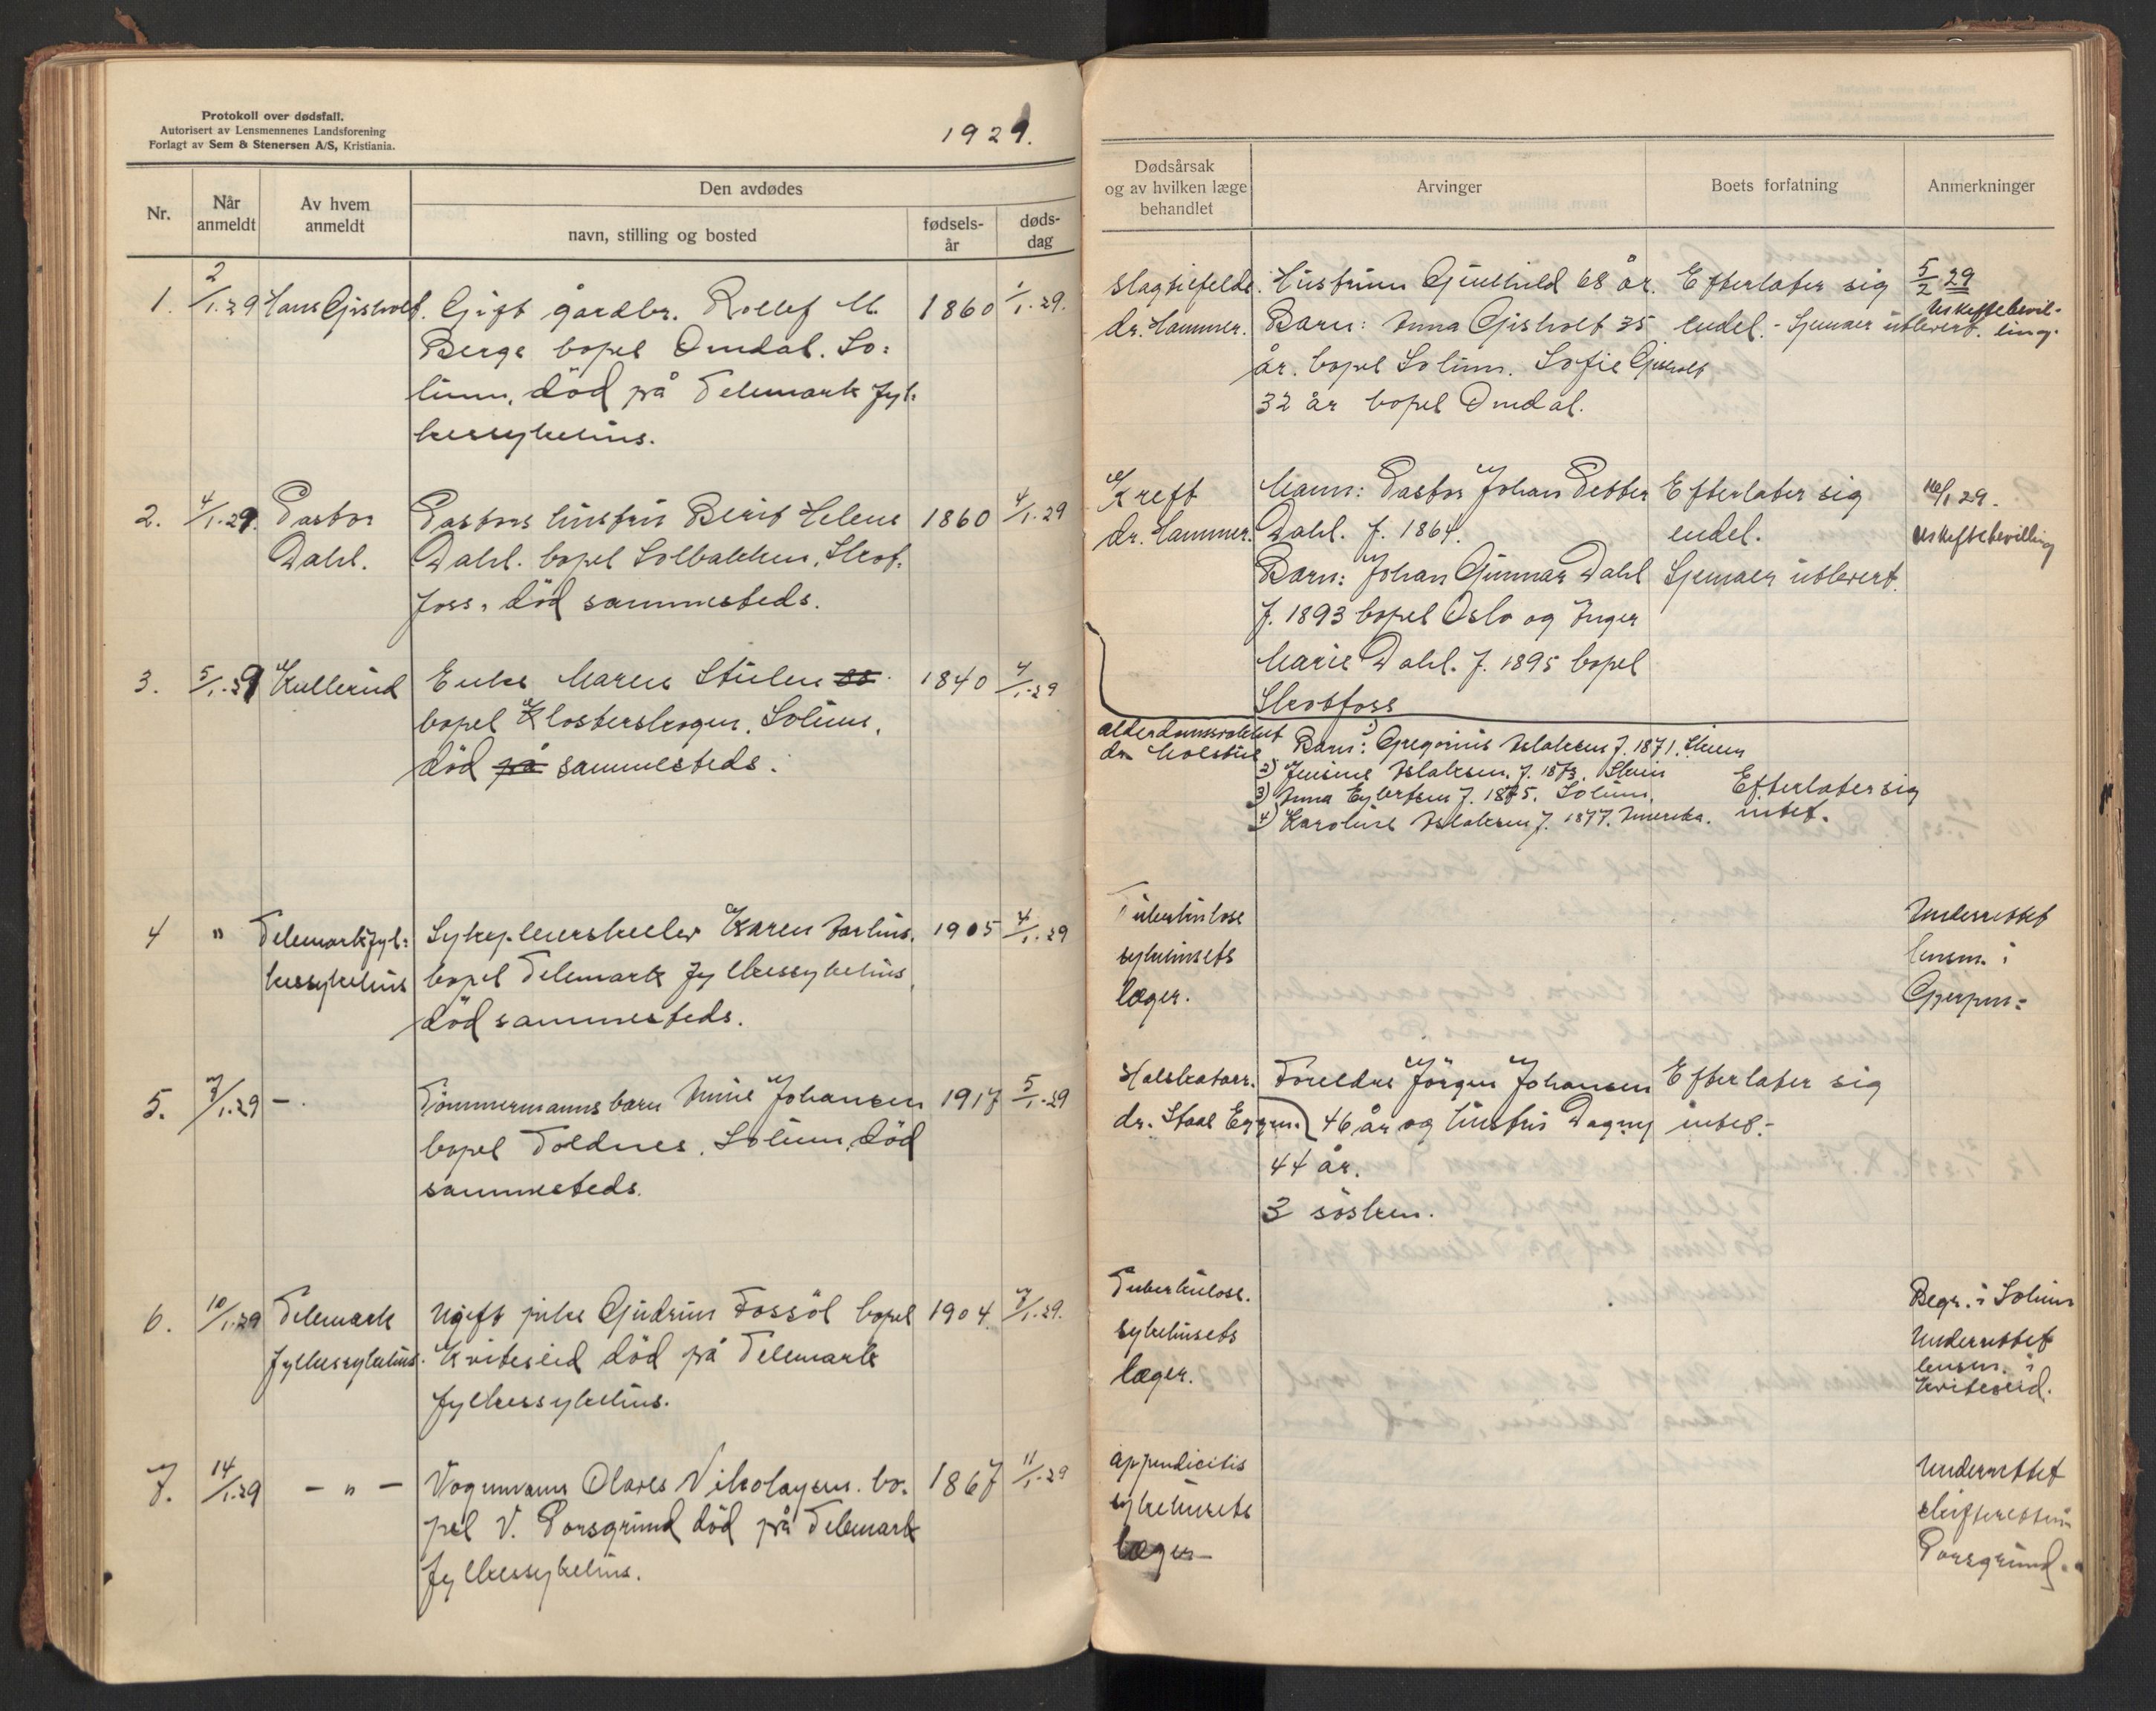 Protokoll over dødsfall.
Autorisert av Lensmennenes Landsforening
Forlagt av Sem & Stenersen A/S, Kristiania.
1929.
Nr.
Når anmeldt
Av hvem anmeldt
Den avdødes
navn, stilling og bosted
fødselsår
dødsdag
1. 2/1.29 Hans Gisholt. Gift gårdbr. Rollef M. 1860 1/1.29.
Berge bopel Omdal. So-
lum, död på Telemark fyl-
kessykehus.
2. 4/1.29. Pastor Pastors hustru Berit Helene 1860 4/1.29
Dahl. Dahl. bopel Solbakken, Skot-
foss, död sammesteds.
3. 5/1.29 Kullerud Enke Maren Stulen 1840 4/1.29
bopel Klosterskogen, Solum,
död på sammesteds.
4 " Telemark fyl- Sykepleierskeelev Karen 1905 4/1.29
kessykehus bopel Telemark fylkessykehus,
död sammesteds.
5. 7/1.29 -. Tömmermanns barn Anne Johansen 1917 5/1.29
bopel Toldnes, Solum, död
sammesteds.
6. 10/1.29 Telemark Ugift pike Gudrun Fossöl bopel 1904. 7/1.29.
fylkessykehus. Kviteseid död på Telemark
fylkessykehus.
7. 14/1.29 - " - Vognmann Olaves Nikolaysen. bo- 1867 11/1.29
pel V. Porsgrund död på Telemark
fylkessykehus.
Dødsårsak
og av hvilken læge
behandlet
Arvinger
Boets forfatning
Anmerkninger
Hustruen Gunhild 68 år. Efterlater sig 5/2 29
dr. Hammer. Barn: Anna Gisholt 35 endel. - Skjemaer utlevert. Uskiftebevil-
ling.
år. bopel Solum. Sofie Gisholt
32 år bopel Omdal.
Kreft Mann: Pastor Johan Petter Efterlater sig 16/1 29.
dr. Hammer. Dahl. f. 1864. endel. Uskiftebevilling
Barn: Johan Gunnar Dahl Sjemaer utlevert.
f. 1893 bopel Oslo og Inger
Marie Dahl. f. 1895 bopel
Skotfoss
alderdomssvakhet
dr. Holstue 1) Barn: Gregorius Aslaksen f. 1871. Skien
2) Jensine Aslaksen. f. 1873. Skien
3) Anna Eylertsen f. 1875. Solum. Efterlater sig
4) Karoline Aslaksen f. 1877. Amerika. intet.
Tuberkulose Underrettet
sykehusets lensm. i
læger. Gjerpen-
Halskatarr. Foreldre Jörgen Johansen Efterlater sig
dr. Staal Eggen. 46 år og hustru Dagny intet.-
44 år.
3 sösken.
Tuberkulose. Begr. i Solum
sykehusets Underrettet
læger. lensm. i
Kviteseid.
appendicitis Underrettet
sykehusets skifteretten i
læger- Porsgrund.